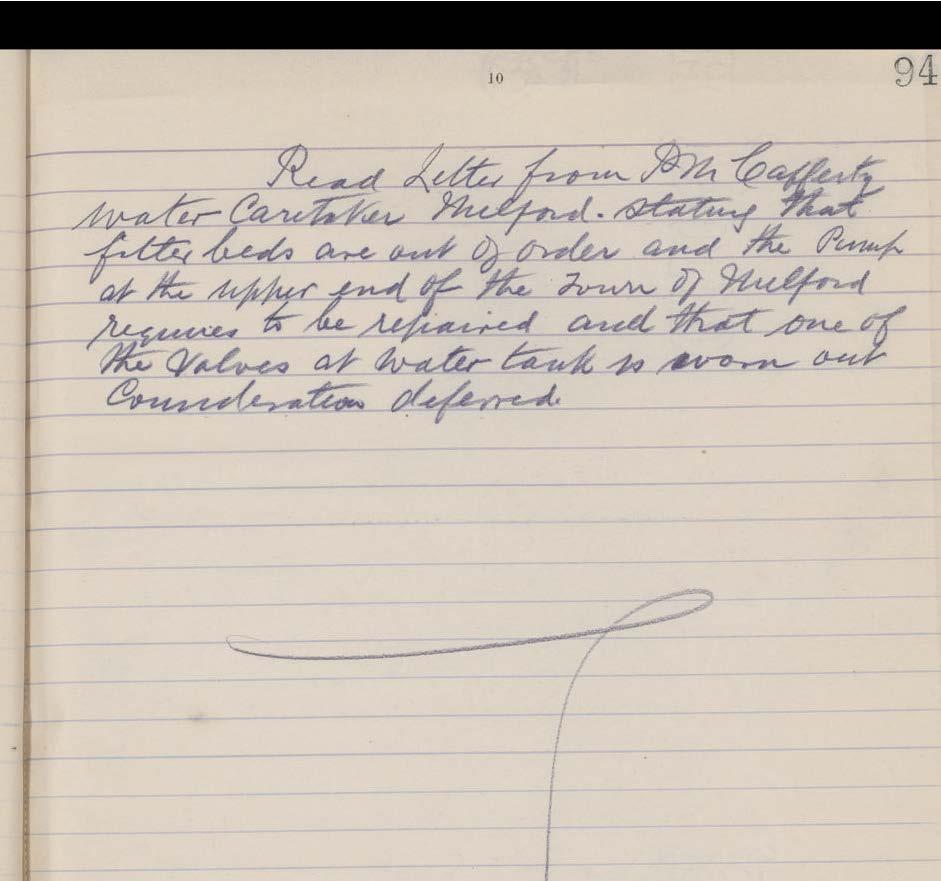 10
94
Read Letter from P McCafferty
Water Caretaker Milford. stating that
filter beds are out of order and the Pump
at the upper end of the Town of Milford
requires to be repaired and that one of
the Valves at water tank is worn out
Consideration deferred.